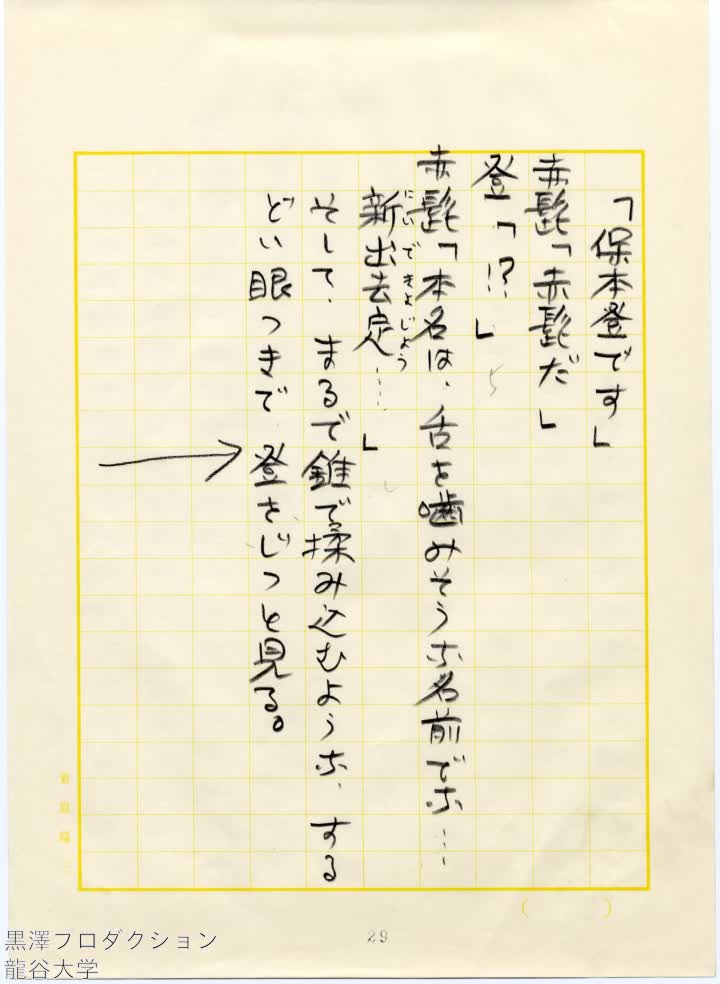 「保本登です」
赤髭「赤髭だ」
登「!?」
赤髭「本名は、舌を噛みそうな名前でな……
新出去定……」
にいできよじよう
そして、まるで錐で揉み込むような、する
どい眼つきで登をじっと見る。
29
黒澤プロダクション
龍谷大学